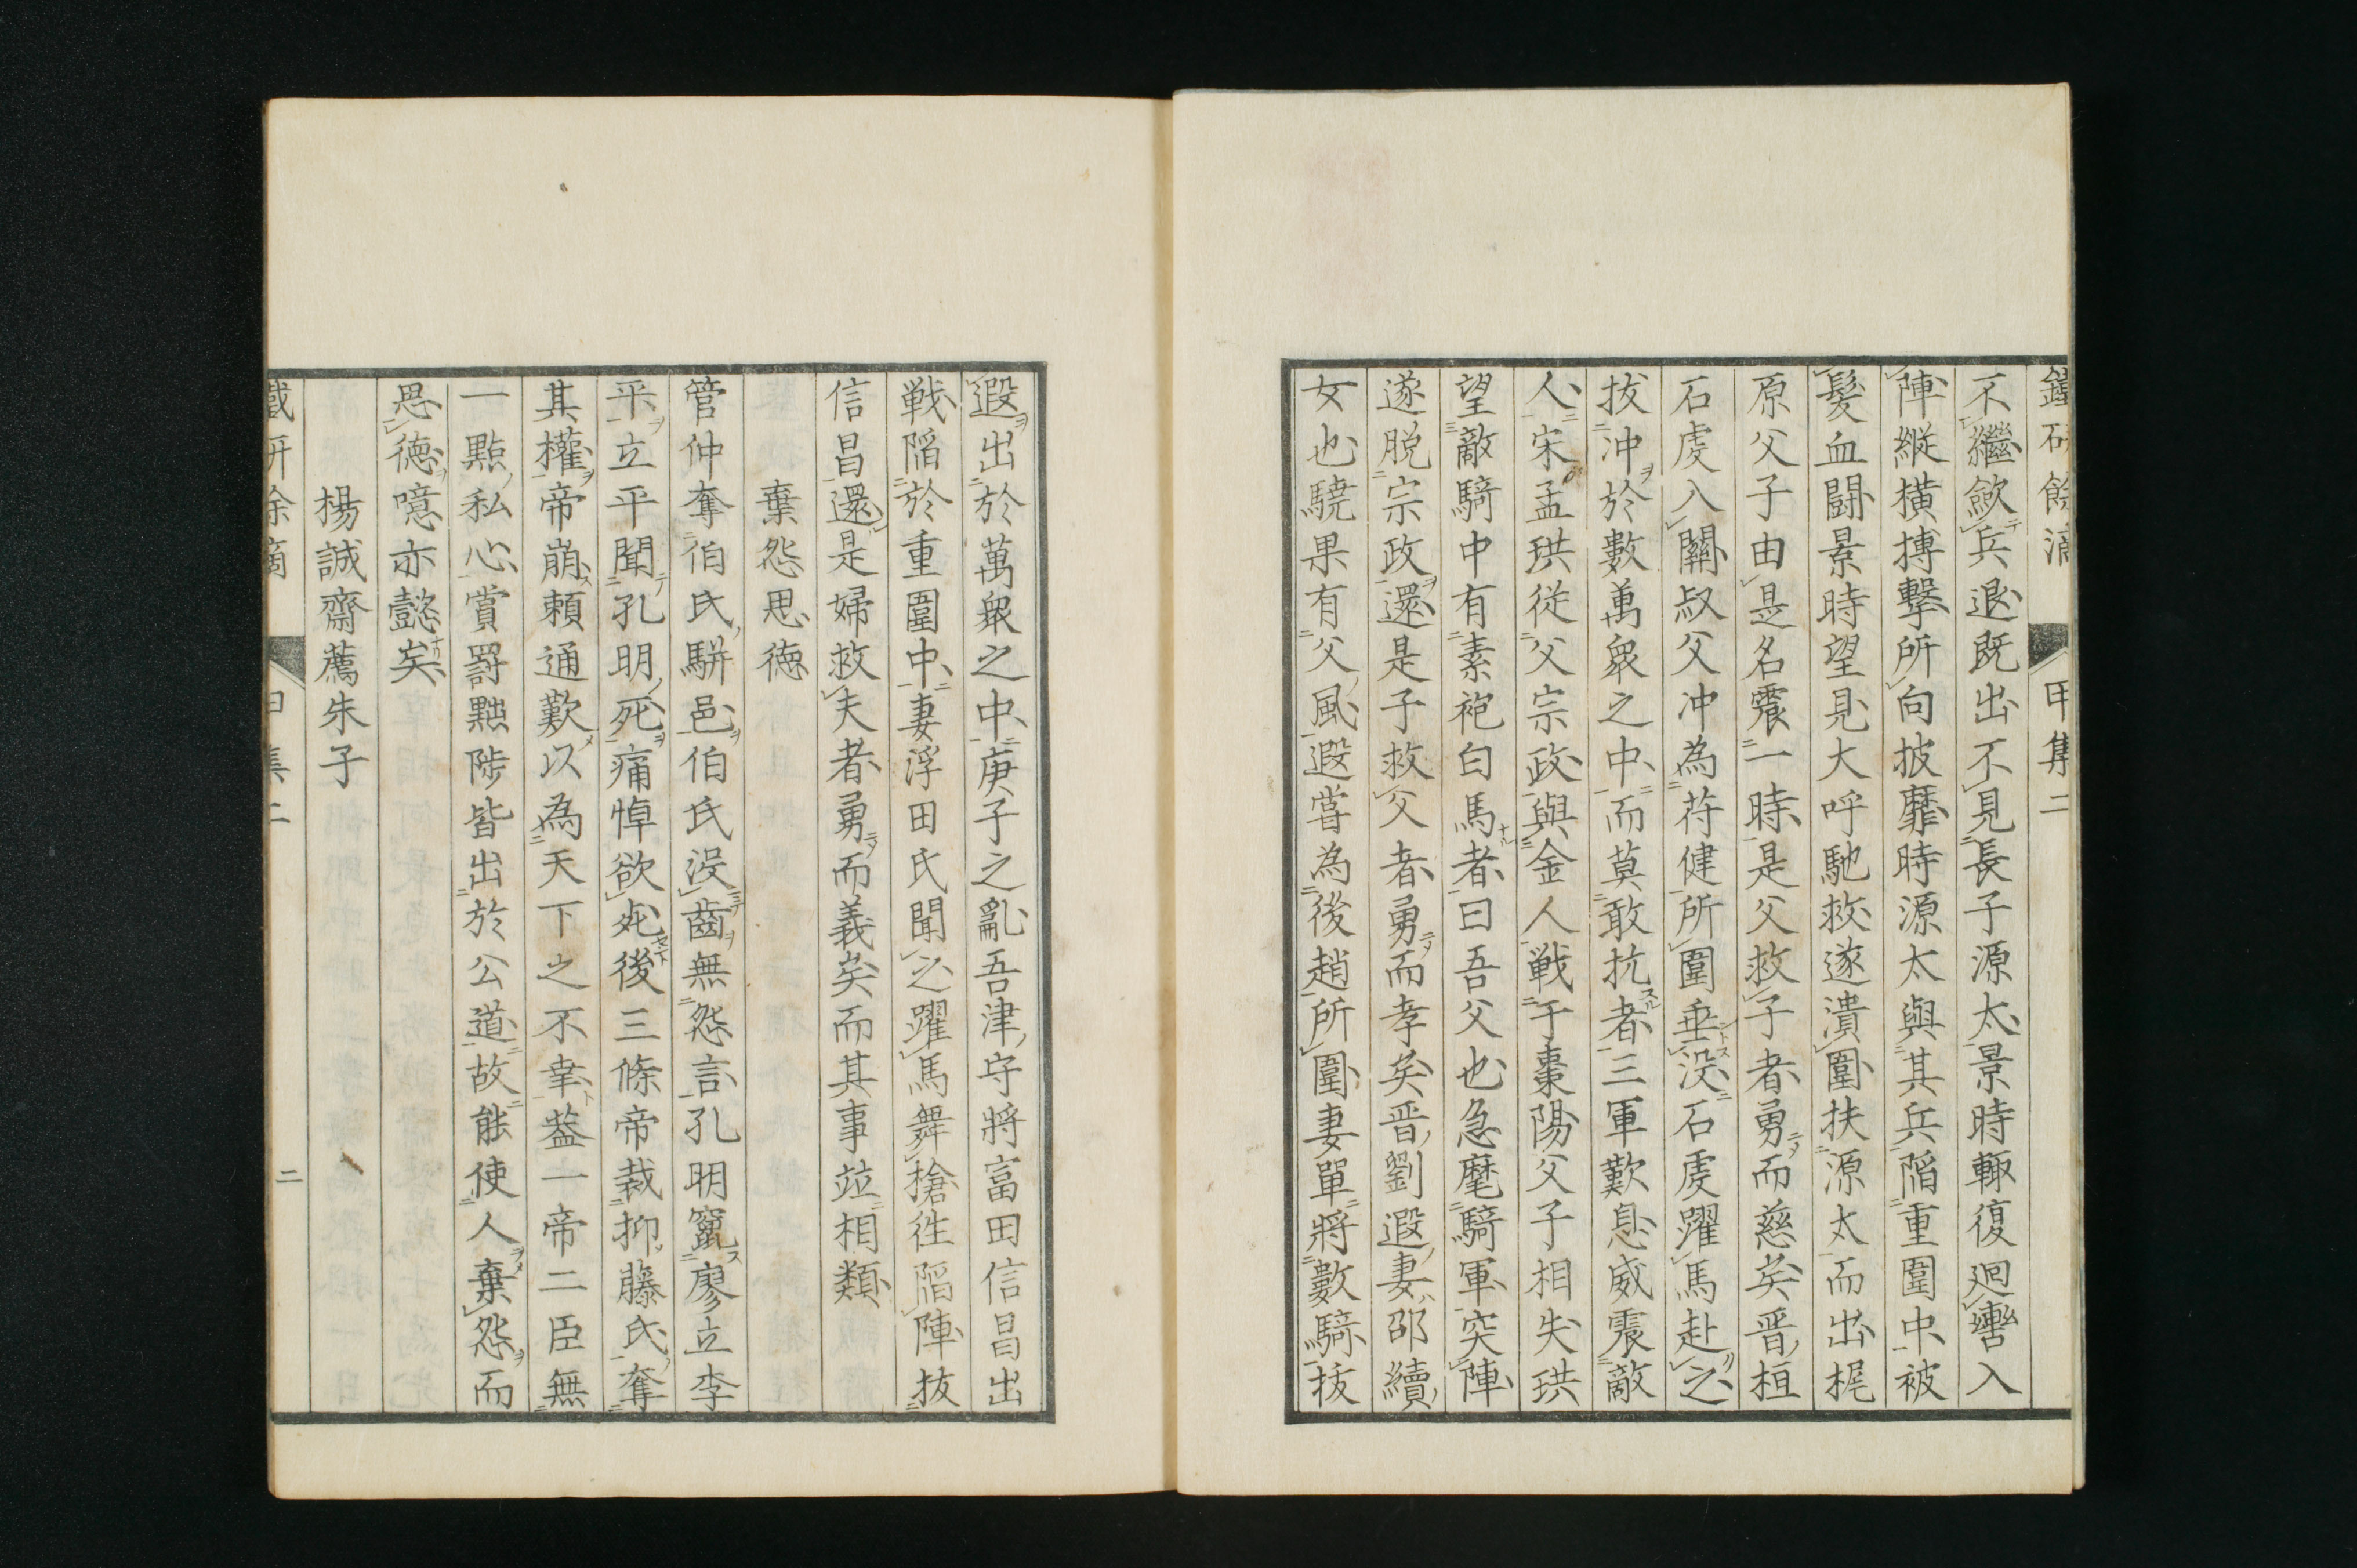 鐵研餘滴 甲集二
不繼歛兵退既出不見長子源太景時輙復迴轡入
陣縦橫搏擊所向披靡時源太與其兵陷重圍中被
髮血鬪景時望見大呼馳救遂潰圍扶源太而出梶
原父子由是名震一時是父救子者勇而慈矣晋桓
石虔入關叔父冲為苻健所圍垂没石虔躍馬赴之
拔冲於數萬衆之中而莫敢抗者三軍歎息威震敵
人宋孟珙従父宗政與金人戦于棗陽父子相失珙
望敵騎中有素袍白馬者曰吾父也急麾騎軍突陣
遂脱宗政還是子救父者勇而孝矣晋劉遐妻邵續
女也驍果有父風遐嘗為後趙所圍妻單將數騎拔
遐出於萬衆之中庚子之亂吾津守將富田信昌出
戦陷於重圍中妻浮田氏聞之躍馬舞槍徃陷陣拔
信昌還是婦救夫者勇而義矣而其事竝相類
棄怨思徳
管仲奪伯氏駢邑伯氏没齒無怨言孔明竄廖立李
平立平聞孔明死痛悼欲死後三條帝裁抑藤氏奪
其權帝崩頼通歎以為天下之不幸葢一帝二臣無
一點私心賞罸黜陟皆出於公道故能使人棄怨而
思徳噫亦懿矣
楊誠齋薦朱子
鐵研餘滴 甲集二 二